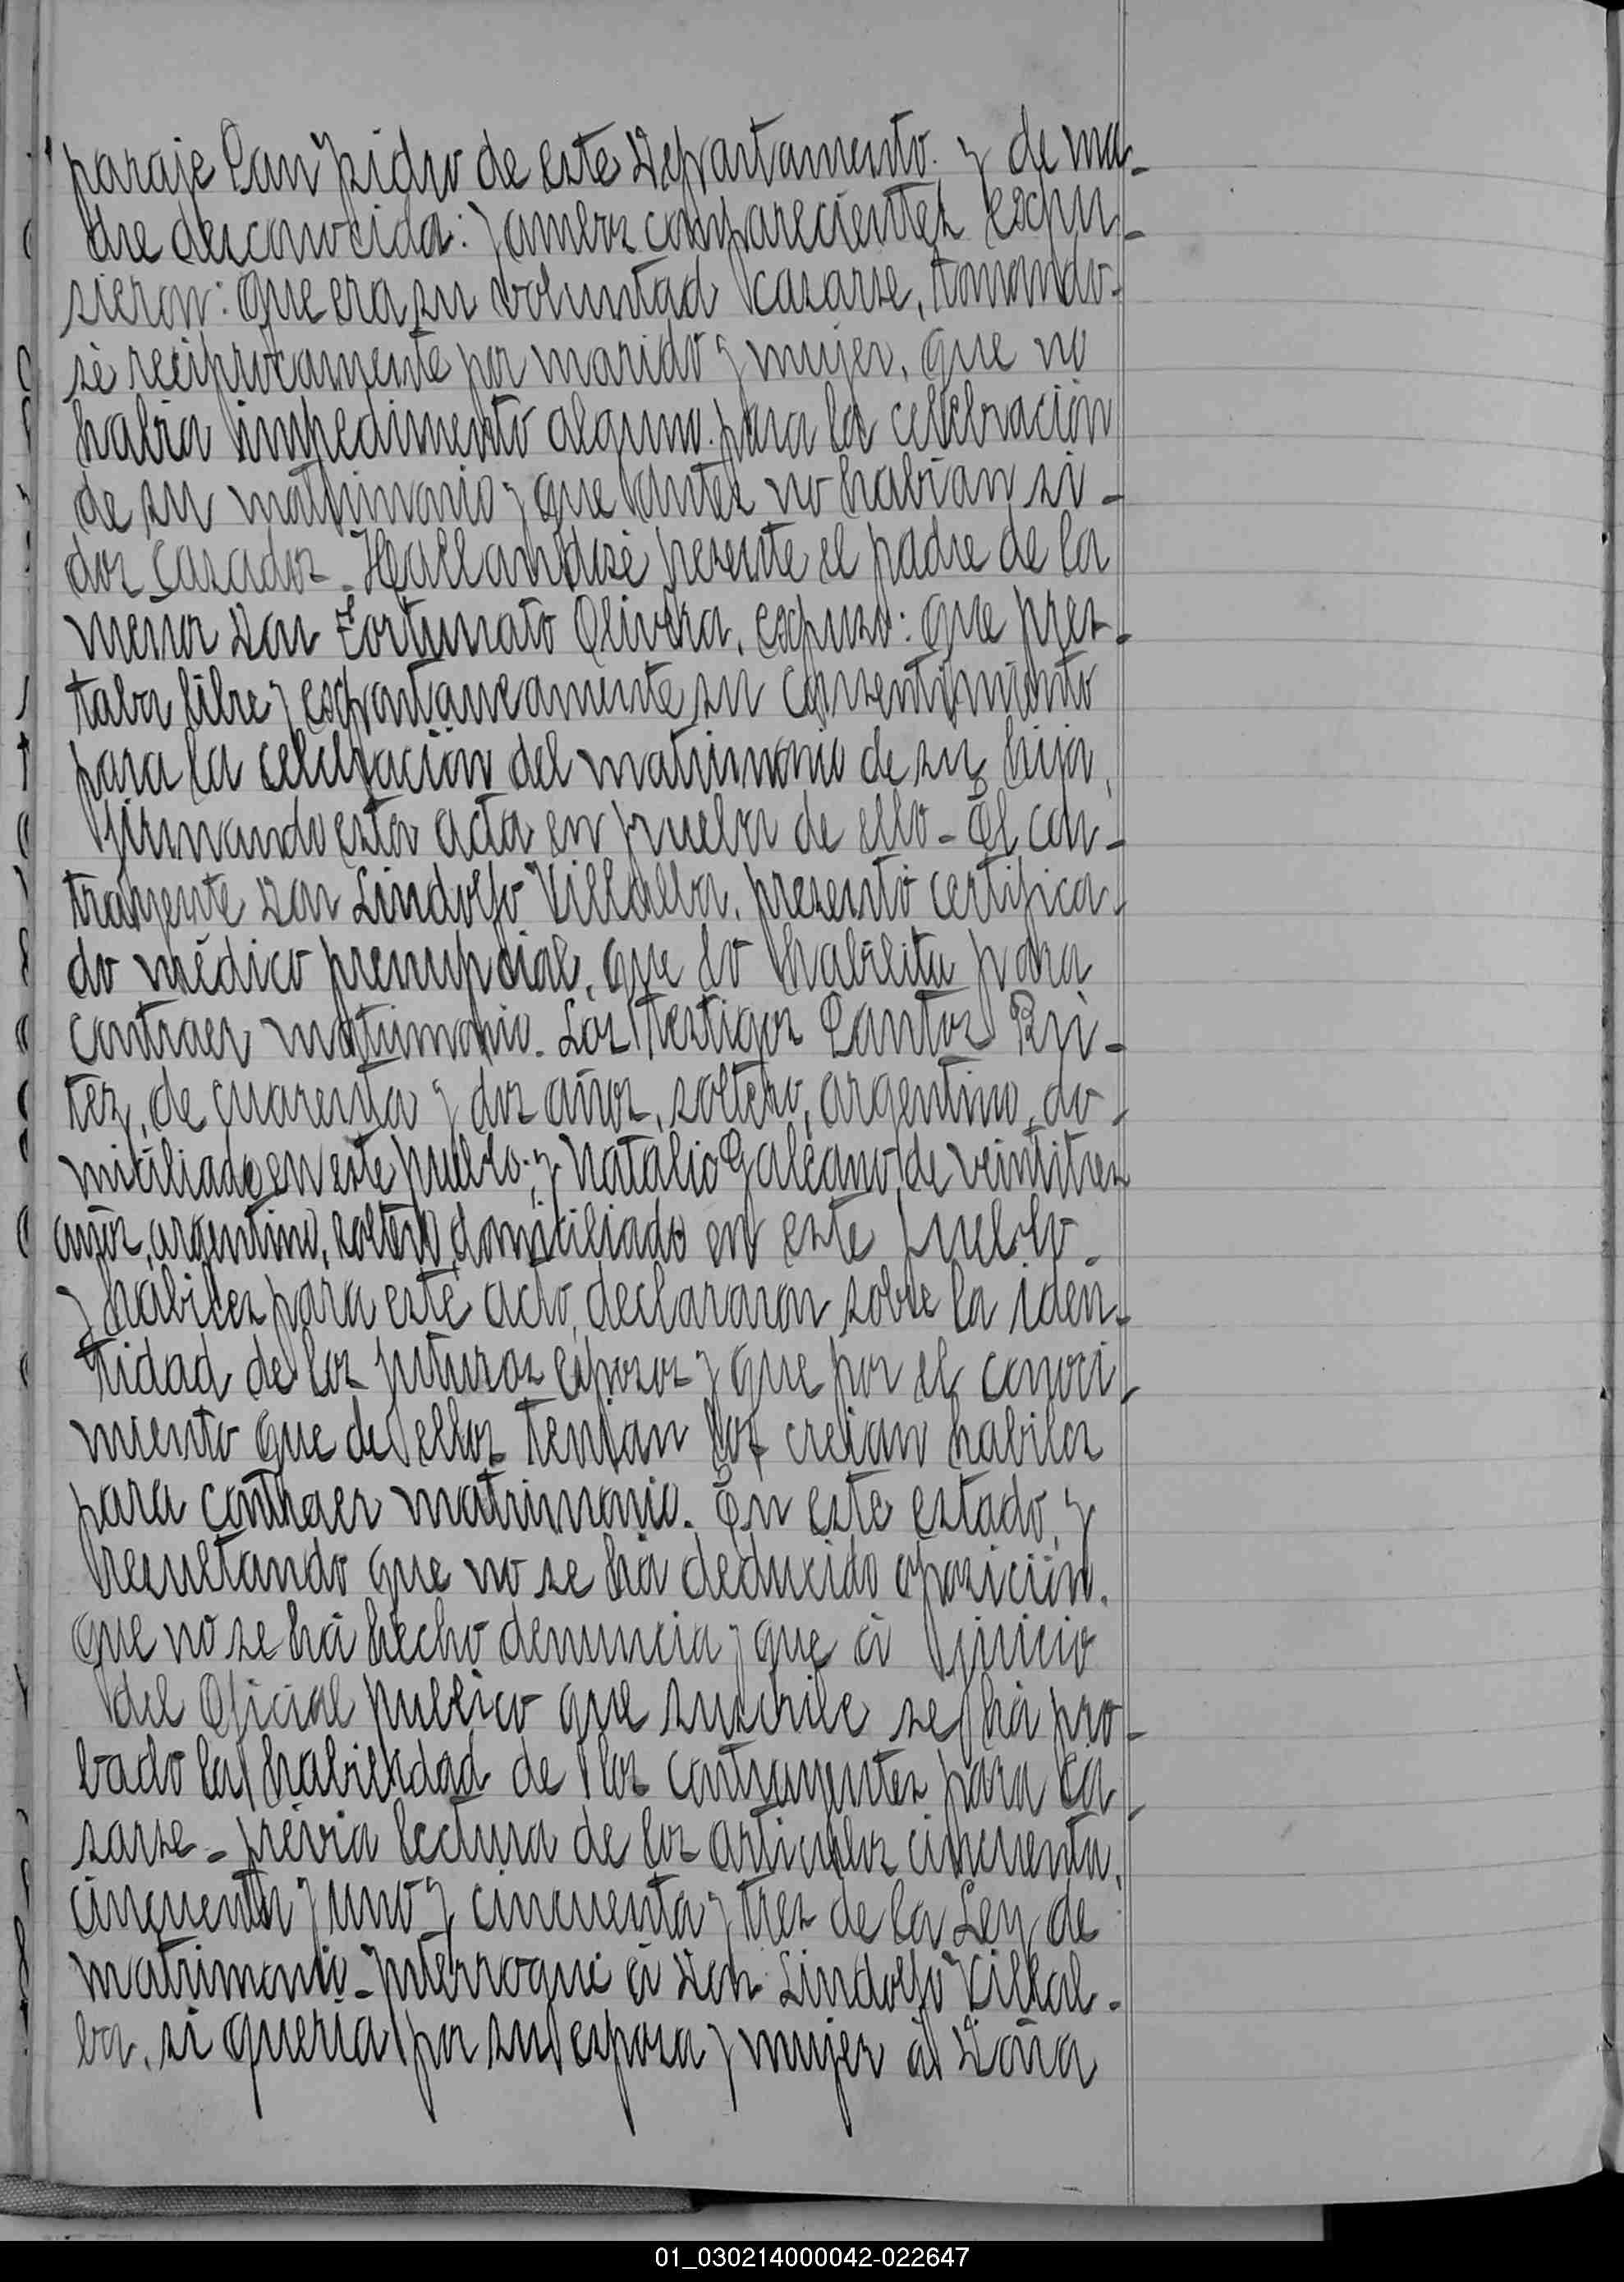 paraje San Isidro de este Departamento. y de ma-
dre desconocida: y ambos comparecientes expu-
sieron: que era su voluntad casarse, tomando-
sé reciprocamente por marido y mujer, que no
habia impedimento alguno para la celebración
de su matrimonio y que antes no habian si-
dos casados - Hallandosé presente el padre de la
menor Don Fortunato Olivera, expuso: que pres-
taba libre y espontaneamente su consentimiento
para la celebración del matrimonio de su hija,
firmando esta acta en prueba de ello - El con-
trayente Don Lindolfo Villalba, presentó certifica-
do médico prenupcial, que lo habilita para
contraer matrimonio. Los testigos Santos Bri-
tez, de cuarenta y dos años, soltero, argentino, do-
miciliado en este pueblo; y Natalio Galeano, de veintitres
años, argentino, soltero, domiciliado en este pueblo.
y hábiles para este acto, declararon sobre la iden-
tidad de los futuros esposos y que por el conoci-
miento que de ellos tenian los creian habiles
para contraer matrimonio. En este estado, y
resultando que no se há deducido oposición,
que no se há hecho denuncia y que á juicio
del Oficial publico que suscribe se há pro-
bado la habilidad de los contrayentes para ca-
sarse - prévia lectura de los articulos cincuenta,
cincuenta y uno y cincuenta y tres de la Ley de
matrimonio - Interrogué á Don Lindolfo Villal-
ba, si queria por su esposa y mujer á Doña
01_030214000042-022647